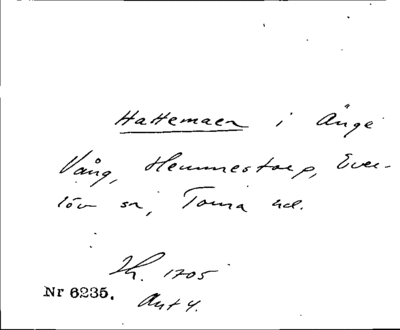 Hattemaen i Änge
Vång, Hemmestorp, Ever-
löv sn, Torna hd.
Lh. 1705
Nr 6235. Ant 4.